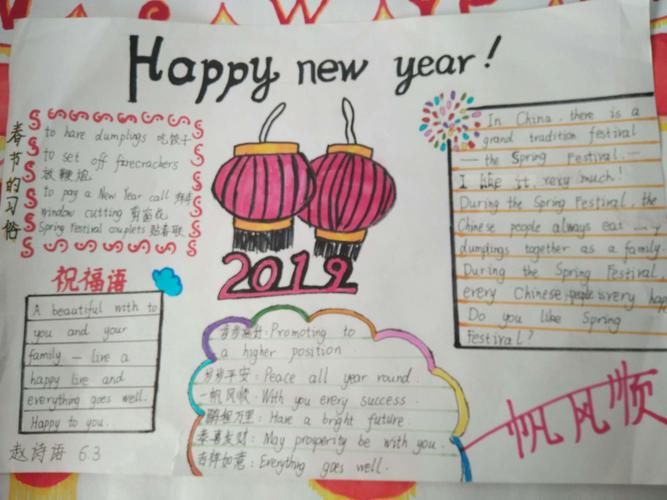 Happy new year!
春节的习俗
to have dumplugs 吃饺子
to set off firecrachers
放鞭炮
to pay a New Year call 拜年
window cutting 剪窗花
Spring Festival couplets 贴春联
2019
In China, there is a
grand tradition festival
— the Spring Festival. —
I like it very much!
During the Spring Festival, the
Chinese people always eat
dumplings together as a family.
During the Spring Festival,
every Chinese people is very
Do you like Spring
Festival?
祝福语
A beautiful with to
you and your
family — live a
happy live and
everything goes well.
Happy to you.
赵诗语 6.3
步步高升: Promoting to
a higher position.
岁岁平安: Peace all year round.
一帆风顺: With you every success.
鹏程万里: Have a bright future.
恭喜发财: May prosperity be with you.
吉祥如意: Everything goes well.
一帆风顺